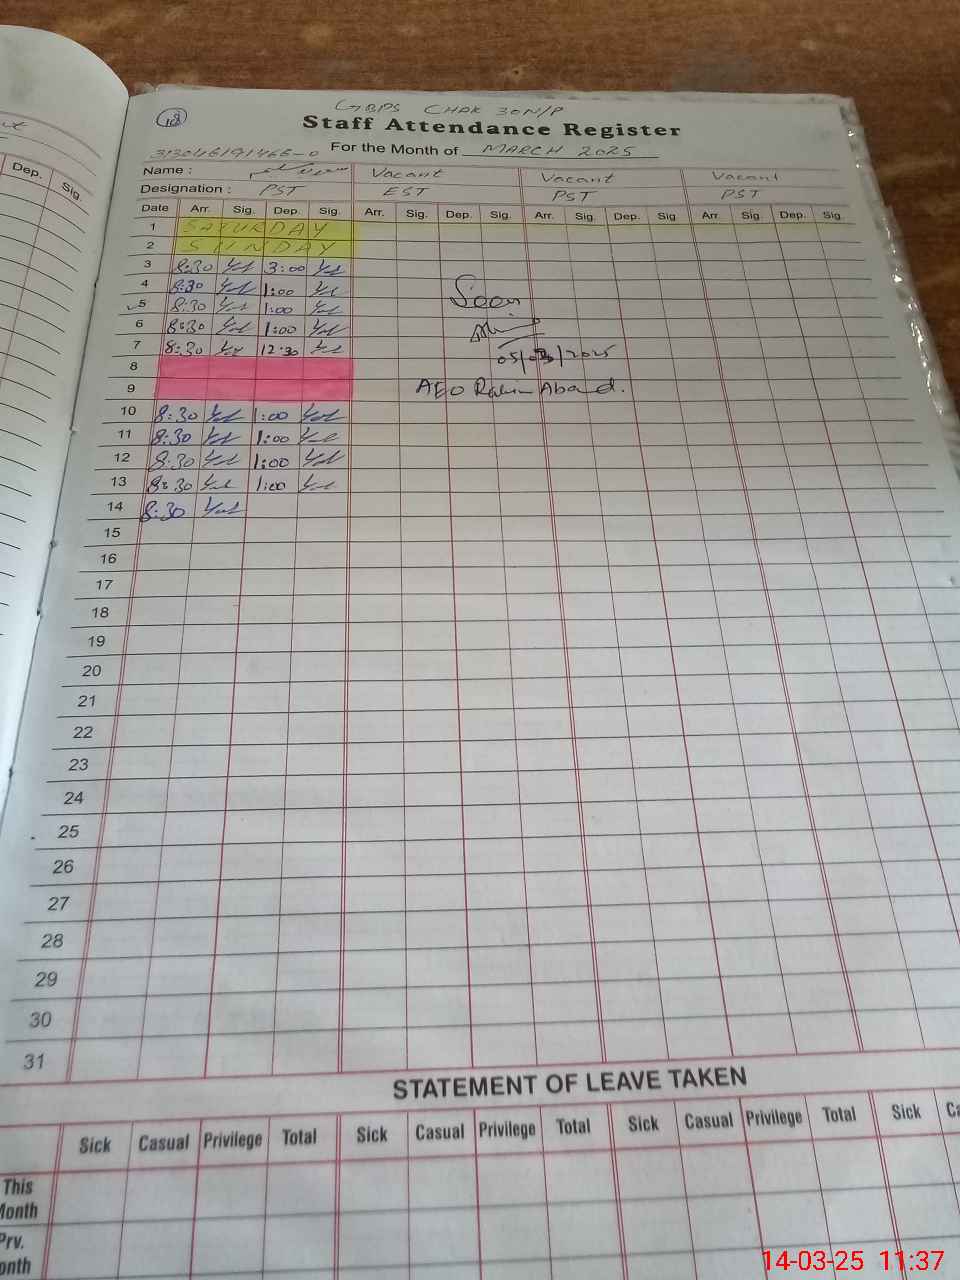 18
GBPS CHAK 30N/P
Staff Attendance Register
For the Month of MARCH 2025
Name : Vacant Vacant Vacant
Designation : PST EST PST PST
Date Arr. Sig. Dep. Sig. Arr. Sig. Dep. Sig. Arr. Sig. Dep. Sig Arr. Sig. Dep. Sig.
1 SATURDAY
2 SUNDAY
3 8:30 3:00
4 8:30 1:00
Seen
5 8:30 1:00
6 8:30 1:00
7 8:30 12:30
05/03/2025
8
9
AEO Rahim Abad.
10 8:30 1:00
11 8:30 1:00
12 8:30 1:00
13 8:30 1:00
14 8:30
15
16
17
18
19
20
21
22
23
24
25
26
27
28
29
30
31
STATEMENT OF LEAVE TAKEN
Sick Casual Privilege Total Sick Casual Privilege Total Sick Casual Privilege Total Sick Ca
This
Month
Prv.
onth
Dep. Sig.
14-03-25 11:37